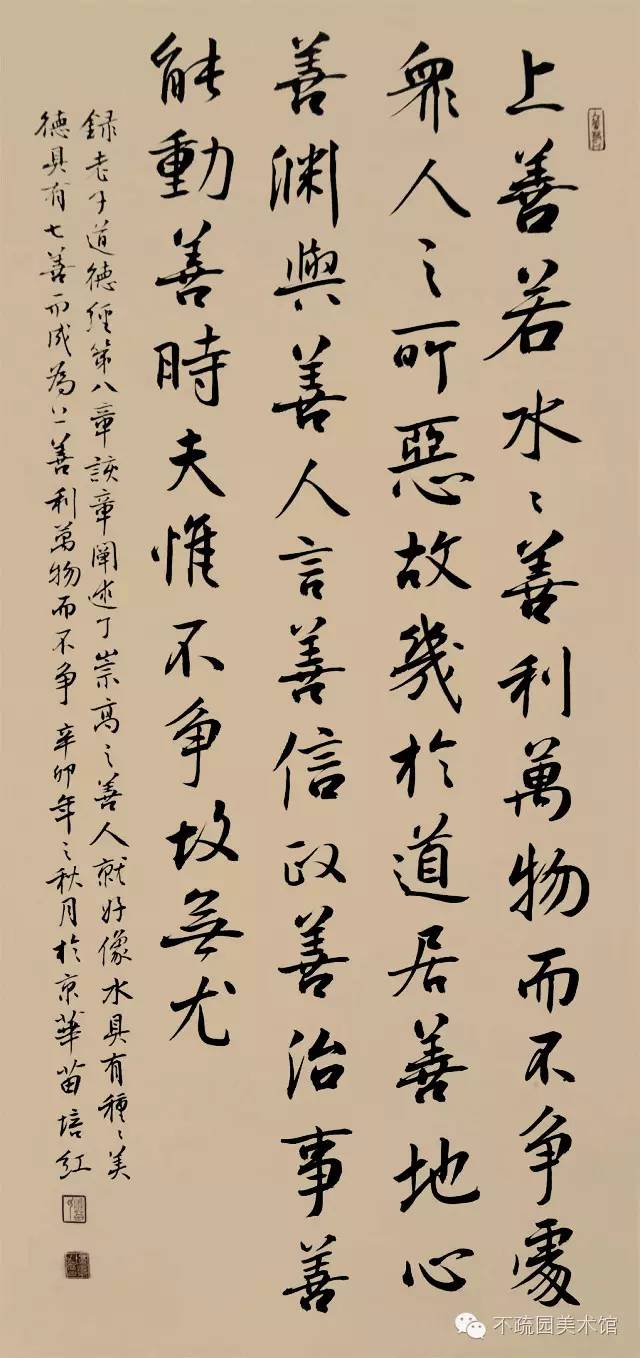 上善若水〻善利萬物而不争處
衆人之所惡故幾於道居善地心
善渊與善人言善信政善治事善
能動善時夫惟不争故無尤
録老子道德經第八章該章阐述了崇高之善人就好像水具有種〻美
德具有七善而成為上善利萬物而不争 辛卯年之秋月於京華苗培紅
不疏园美术馆